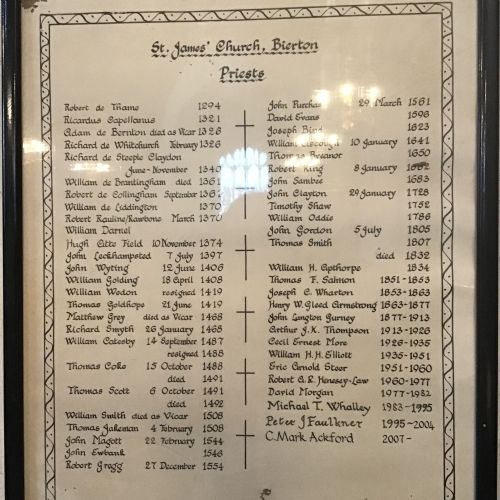 St. James' Church, Bierton
Priests
Robert de Thame 1294
Ricardus Capellanus 1321
Adam de Bernton died as Vicar 1326
Richard de Whitchurch February 1326
Richard de Steeple Claydon
June-November 1340
William de Brantingham died 1361
Robert de Collingham September 1361
William de Luddington 1370
Robert Rauline/Rawbone March 1370
William Darnel
Hugh Atte Field 10 November 1374
John Leckhampsted 7 July 1397
John Wyting 12 June 1406
William Golding 18 April 1408
William Wedon resigned 1419
Thomas Goldhope 21 June 1419
Matthew Grey died as Vicar 1468
Richard Smyth 26 January 1468
William Catesby 14 September 1487
resigned 1488
Thomas Coke 15 October 1488
died 1491
Thomas Scott 6 October 1491
died 1492
William Smith died as Vicar 1508
Thomas Jakeman 4 February 1508
John Magott 22 February 1544
John Ewbank 1546
Robert Gragg 27 December 1554
John Purchas 29 March 1561
David Evans 1598
Joseph Bird 1623
William Ascough 10 January 1641
Thomas Breanor 1650
Robert King 8 January 1662
John Sambee 1683
John Clayton 29 January 1728
Timothy Shaw 1752
William Oddie 1786
John Gordon 5 July 1805
Thomas Smith 1807
died 1832
William H. Apthorpe 1834
Thomas F. Salmon 1851-1853
Joseph C. Wharton 1853-1863
Henry W. Gleed Armstrong 1863-1877
John Langton Gurney 1877-1913
Arthur J.K. Thompson 1913-1926
Cecil Ernest More 1926-1935
William H.H. Elliott 1935-1951
Eric Arnold Steer 1951-1960
Robert G.R. Henesey-Law 1960-1977
David Morgan 1977-1982
Michael T. Whalley 1983-1995
Peter J Faulkner 1995-2004
C. Mark Ackford 2007-